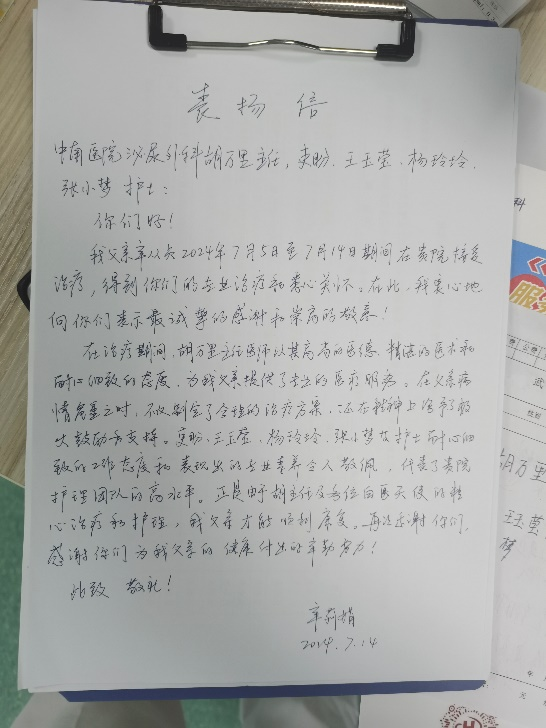 表扬信
中南医院泌尿外科胡万里主任，奕盼、王玉莹、杨玲玲、
张小梦 护士：
你们好！
我父亲辛从兵2024年7月5日至7月14日期间在贵院接受
治疗，得到你们的专业治疗和悉心关怀。在此，我衷心地
向你们表示最诚挚的感谢和崇高的敬意！
在治疗期间，胡万里主任医师以其高尚的医德、精湛的医术和
耐心细致的态度，为我父亲提供了专业的医疗服务。在父亲病
情危重之时，不仅制定了合理的治疗方案，还在精神上给予了极
大鼓励和支持。奕盼、王玉莹、杨玲玲、张小梦护士耐心细
致的工作态度和表现出的专业素养令人敬佩，代表了贵院
护理团队的高水平。正是由于胡主任及各位白衣天使的精
心治疗和护理，我父亲才能顺利康复。再次感谢你们，
感谢你们为我父亲的健康付出的辛勤努力！
此致 敬礼！
辛莉娟
2024.7.14
科
服务
胡万里
王玉莹
梦